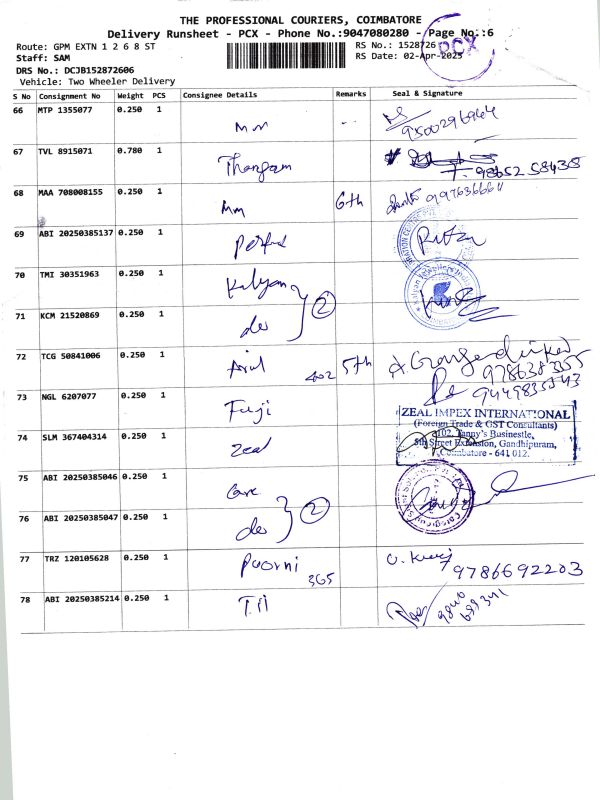 THE PROFESSIONAL COURIERS, COIMBATORE
Delivery Runsheet - PCX - Phone No.:9047080280 - Page No.:6
Route: GPM EXTN 1 2 6 8 ST
RS No.: 1528726
PCX
Staff: SAM
RS Date: 02-Apr-2025
DRS No.: DCJB152872606
Vehicle: Two Wheeler Delivery
S No Consignment No Weight PCS Consignee Details Remarks Seal & Signature
66 MTP 1355077 0.250 1 Mm
9500296964
67 TVL 8915071 0.780 1 Thangam
98652 58438
68 MAA 708008155 0.250 1 Mm 6th
69 ABI 20250385137 0.250 1
70 TMI 30351963 0.250 1 Kalyan
2
71 KCM 21520869 0.250 1 do
72 TCG 50841006 0.250 1 402 5th
9786383355
73 NGL 6207077 0.250 1 Fuji
9449835343
74 SLM 367404314 0.250 1 Zeal
ZEAL IMPEX INTERNATIONAL
(Foreign Trade & GST Consultants)
102, Tanny's Businestle,
5th Street Extension, Gandhipuram,
Coimbatore - 641 012.
75 ABI 20250385046 0.250 1 Care
2
76 ABI 20250385047 0.250 1 do
77 TRZ 120105628 0.250 1 Poorni 365
9786692203
78 ABI 20250385214 0.250 1